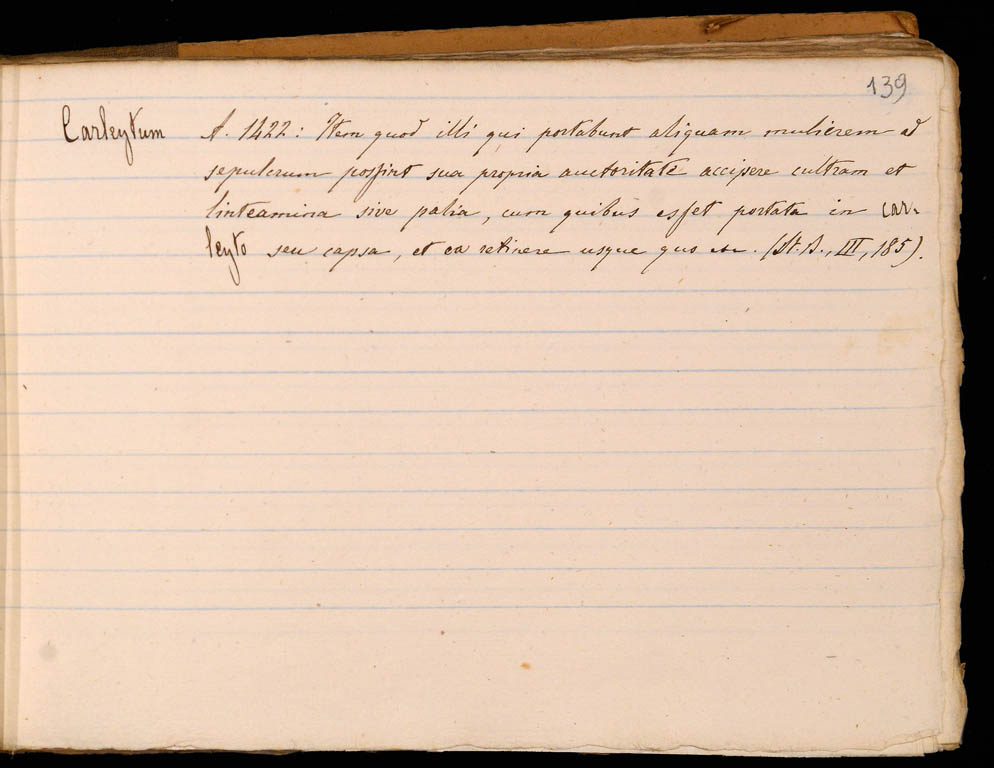 139
Carleytum A. 1422: Item quod illi qui portabunt aliquam mulierem ad
sepulcrum possint sua propria auctoritate accipere cultram et
linteamina sive palia, cum quibus esset portata in car-
leyto seu capsa, et ea retinere usque quo etc. (St. B., III, 185).